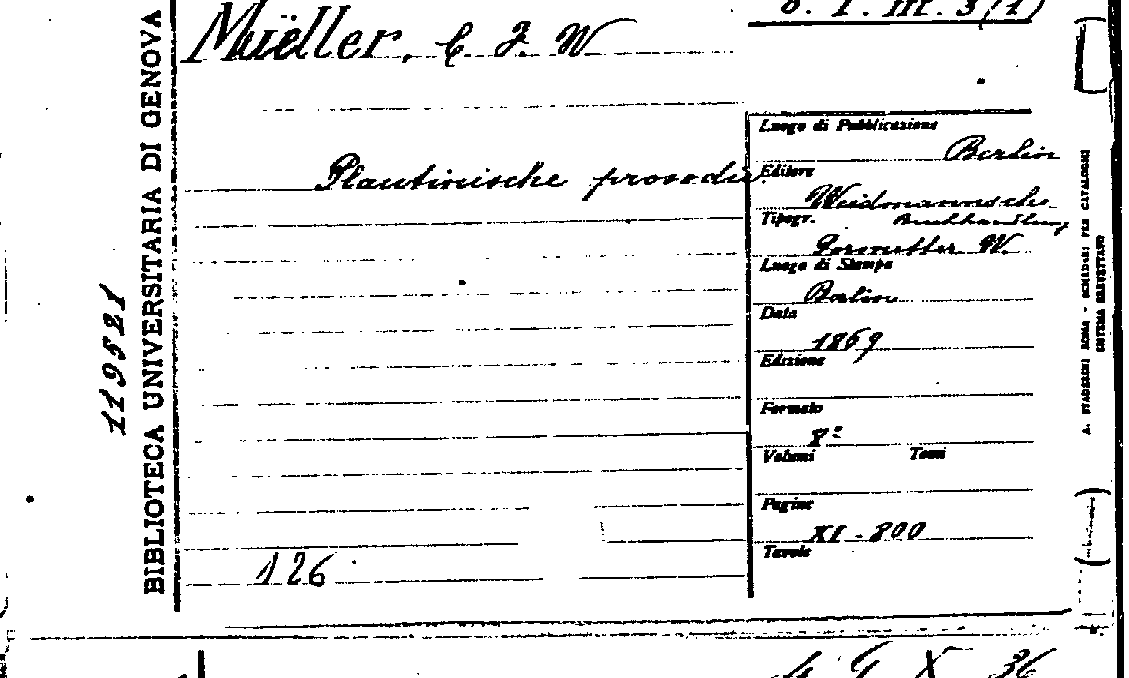 Müeller, C. F. W
Plautinische prosodie.
Luogo di Pubblicazione
Berlin
Editore
Weidmannsche
Buchhandlung
Tipogr.
Formetter W.
Luogo di Stampa
Berlin
Data
1869
Edizione
Formato
8º
Volumi Tomi
Pagine
XI - 800
Tavole
126
BIBLIOTECA UNIVERSITARIA DI GENOVA
119521
A. STADERINI ROMA - SCHEDARI PER CATALOGHI
SISTEMA BREVETTATO
4 G X 36